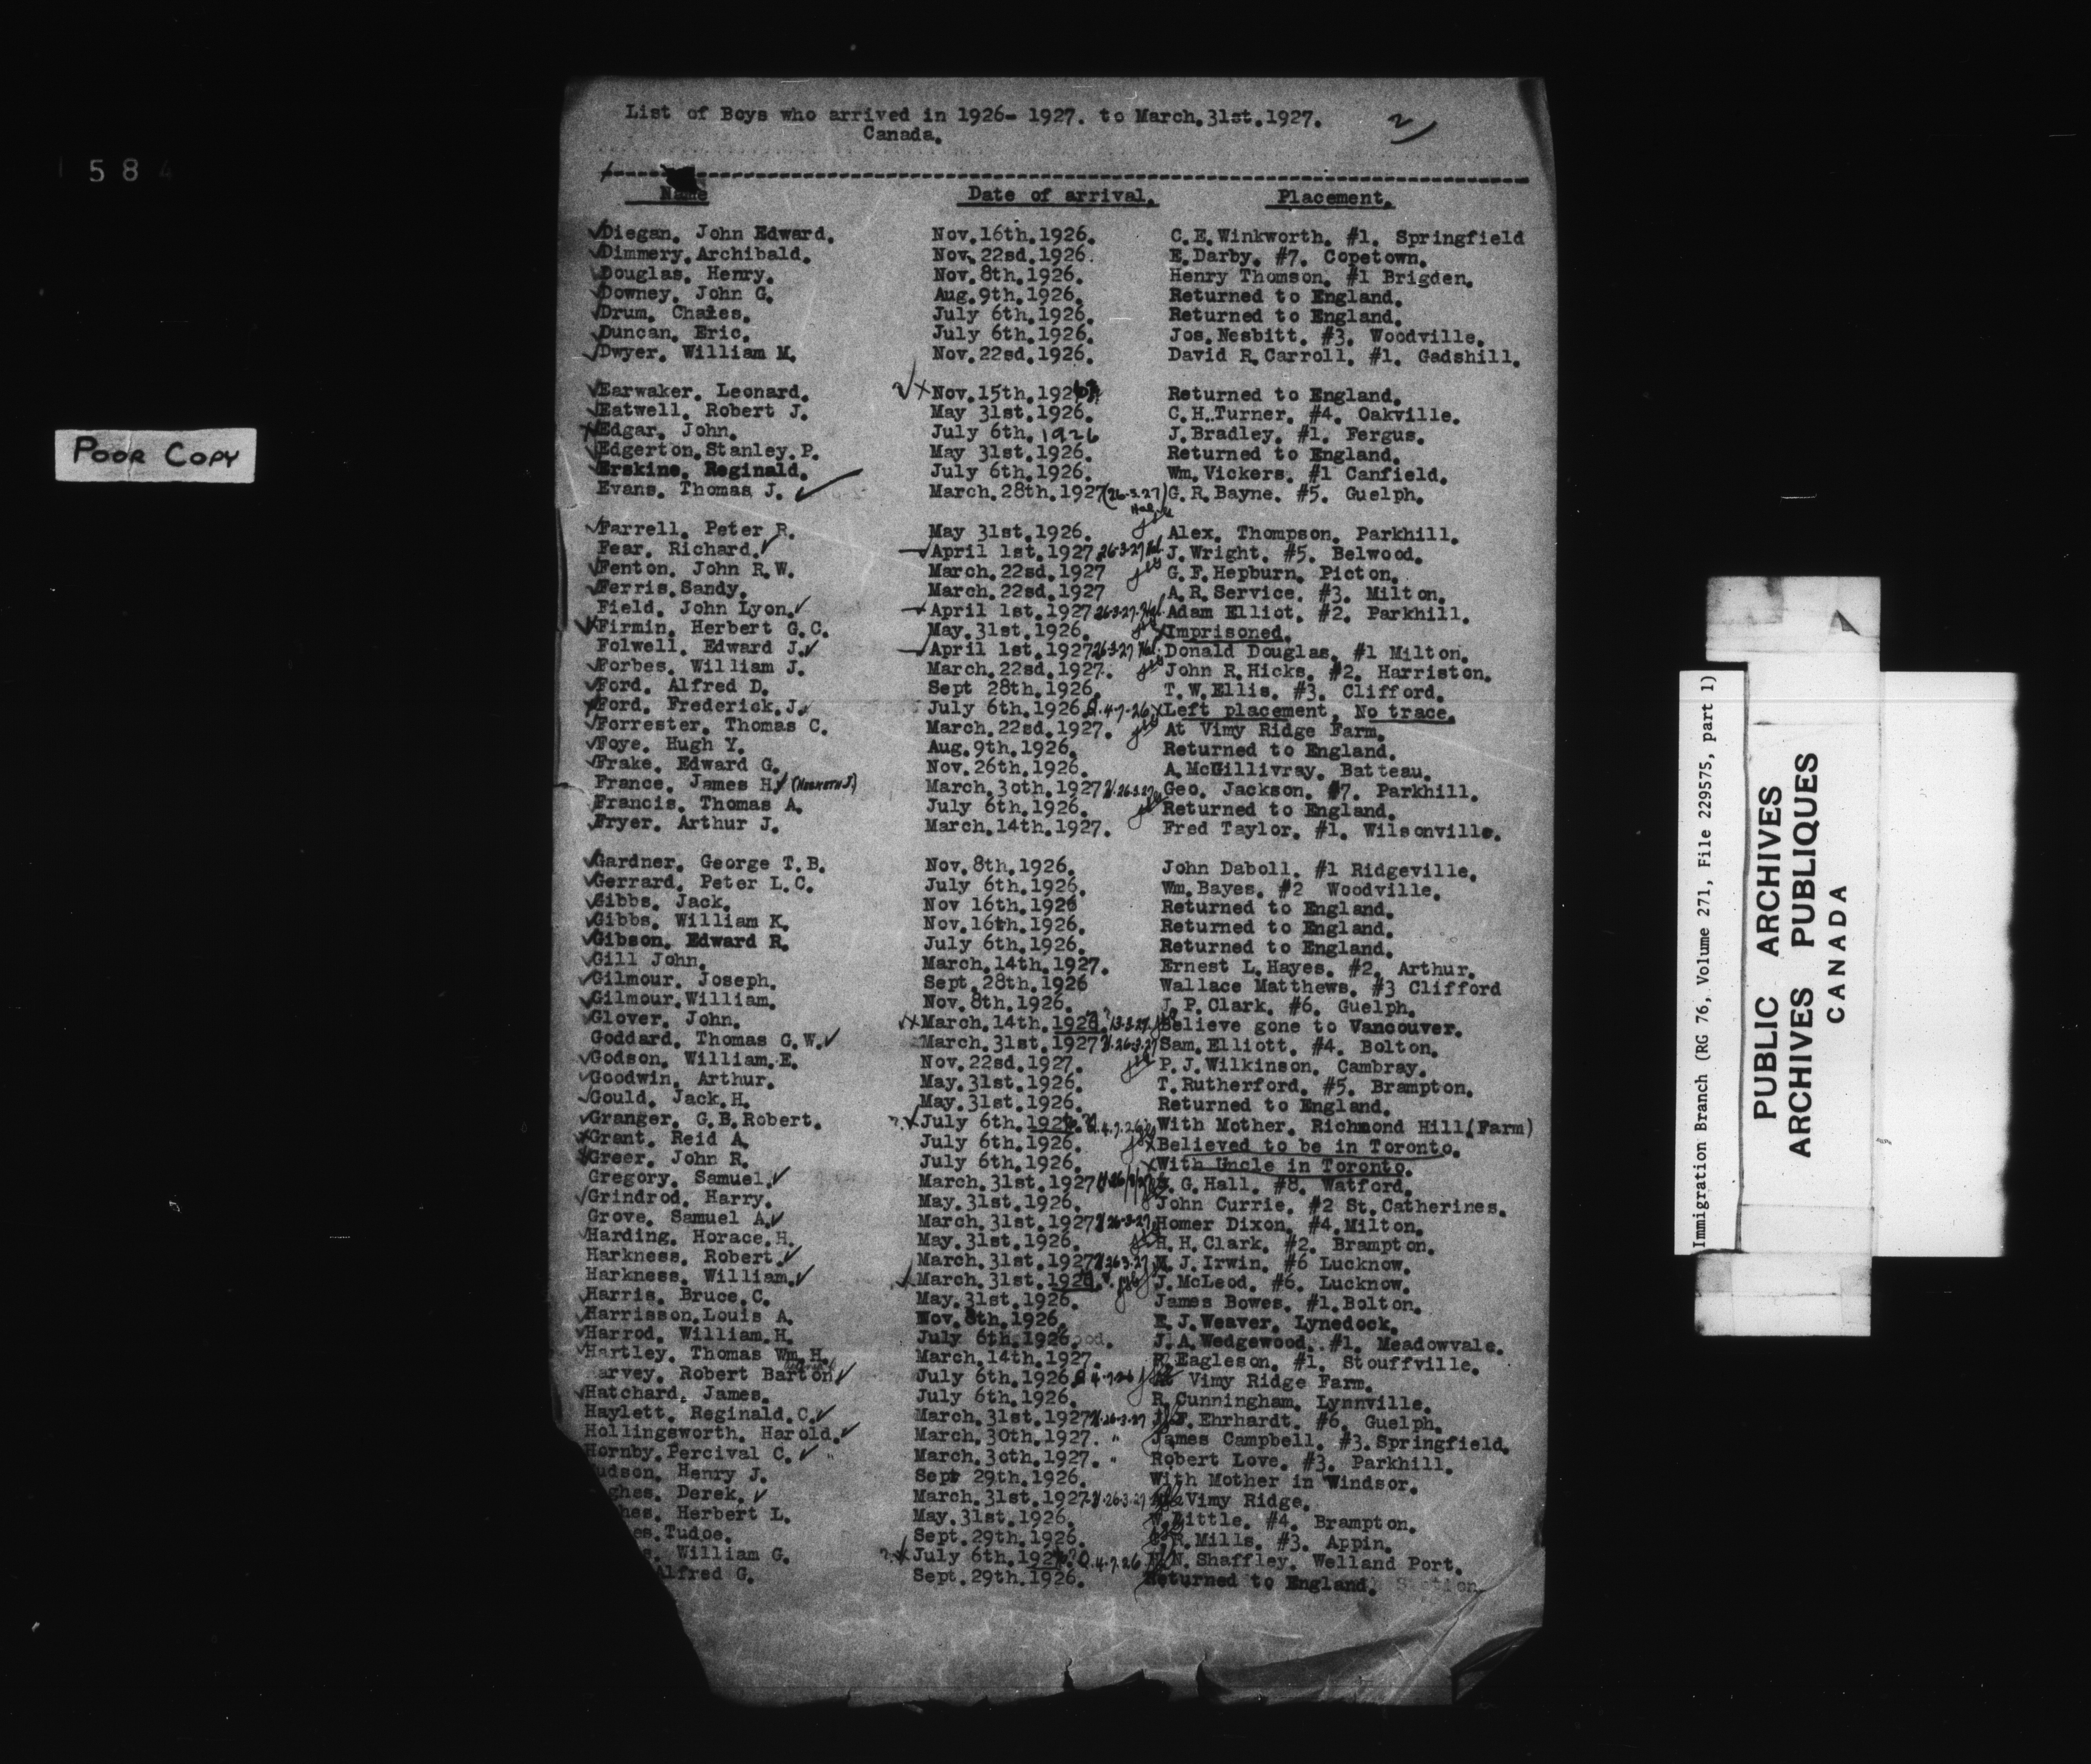 List of Boys who arrived in 1926- 1927. to March.31st.1927.
Canada.
2
584
Name Date of arrival. Placement.
Diegan. John Edward. Nov.16th.1926. C.E.Winkworth. #1. Springfield
Dimmery.Archibald. Nov.22sd.1926. E.Darby. #7. Copetown.
Douglas. Henry. Nov.8th.1926. Henry Thomson. #1 Brigden.
Downey. John G. Aug.9th.1926. Returned to England.
Drum. Chales. July 6th.1926. Returned to England.
Duncan. Eric. July 6th.1926. Jos.Nesbitt. #3. Woodville.
Dwyer. William M. Nov.22sd.1926. David R.Carroll. #1. Gadshill.
Earwaker. Leonard. Nov.15th.1926 Returned to England.
Eatwell. Robert J. May 31st.1926. C.H.Turner. #4. Oakville.
Edgar. John. July 6th. 1926 J.Bradley. #1. Fergus.
Edgerton.Stanley.P. May 31st.1926. Returned to England.
Erskine. Reginald. July 6th.1926. Wm.Vickers. #1 Canfield.
Evans. Thomas J. March.28th.1927(26-3-27) G.R.Bayne. #5. Guelph.
Farrell. Peter R. May 31st.1926. Alex. Thompson. Parkhill.
Fear. Richard. April 1st.1927 26-3-27 Hal J.Wright. #5. Belwood.
Fenton. John R.W. March.22sd.1927 G.F.Hepburn. Picton.
Ferris.Sandy. March.22sd.1927 A.R.Service. #3. Milton.
Field. John Lyon. April 1st.1927 26-3-27-Hal. Adam Elliot. #2. Parkhill.
Firmin. Herbert G.C. May.31st.1926. Imprisoned.
Folwell. Edward J. April 1st.1927 26-3-27 Hal. Donald Douglas. #1 Milton.
Forbes. William J. March.22sd.1927. John R.Hicks. #2. Harriston.
Ford. Alfred D. Sept 28th.1926. T.W.Ellis. #3. Clifford.
Ford. Frederick.J. July 6th.1926 4-7-26 Left placement. No trace.
Forrester. Thomas C. March.22sd.1927. At Vimy Ridge Farm.
Foye. Hugh Y. Aug.9th.1926. Returned to England.
Frake. Edward G. Nov.26th.1926. A.McGillivray. Batteau.
France. James H. March.3oth.1927 26-3-27 Geo. Jackson. #7. Parkhill.
Francis. Thomas A. July 6th.1926. Returned to England.
Fryer. Arthur J. March.14th.1927. Fred Taylor. #1. Wilsonville.
Gardner. George T.B. Nov.8th.1926. John Daboll. #1 Ridgeville.
Gerrard. Peter L.C. July 6th.1926. Wm.Bayes. #2 Woodville.
Gibbs. Jack. Nov 16th.1926 Returned to England.
Gibbs. William K. Nov.16th.1926. Returned to England.
Gibson. Edward R. July 6th.1926. Returned to England.
Gill John. March.14th.1927. Ernest L.Hayes. #2. Arthur.
Gilmour. Joseph. Sept.28th.1926 Wallace Matthews. #3 Clifford
Gilmour.William. Nov.8th.1926. J.P.Clark. #6. Guelph.
Glover. John. March.14th.192 13-3-27 Believe gone to Vancouver.
Goddard. Thomas G.W. March.31st.1927 26-3-27 Sam.Elliott. #4. Bolton.
Godson. William.E. Nov.22sd.1927. P.J.Wilkinson. Cambray.
Goodwin. Arthur. May.31st.1926. T.Rutherford. #5. Brampton.
Gould. Jack.H. May.31st.1926. Returned to England.
Granger. G.B.Robert. July 6th.192 4.7.26 With Mother. Richmond Hill.(Farm)
Grant. Reid A. July 6th.1926. Believed to be in Toronto.
Greer. John R. July 6th.1926. With Uncle in Toronto.
Gregory. Samuel. March.31st.1927 26/3/27 G.Hall. #8. Watford.
Grindrod. Harry. May.31st.1926. John Currie. #2 St.Catherines.
Grove. Samuel A. March.31st.1927 26-3-27 Homer Dixon. #4.Milton.
Harding. Horace.H. May.31st.1926. H.H.Clark. #2. Brampton.
Harkness. Robert. March.31st.1927 26-3-27 J.Irwin. #6 Lucknow.
Harkness. William. March.31st.192 J.McLeod. #6. Lucknow.
Harris. Bruce.C. May.31st.1926. James Bowes. #1.Bolton.
Harrisson.Louis A. Nov.8th.1926. E.J.Weaver. Lynedock.
Harrod. William.H. July 6th.1926 J.A.Wedgewood. #1. Meadowvale.
Hartley. Thomas Wm.H. March.14th.1927. Eagleson. #1. Stouffville.
arvey. Robert Barton July 6th.1926 4-7-26 Vimy Ridge Farm.
Hatchard. James. July 6th.1926. R.Cunningham. Lynnville.
Haylett. Reginald.C. March.31st.1927 26-3-27 F.Ehrhardt. #6. Guelph.
Hollingsworth. Harold. March.30th.1927. " James Campbell. #3.Springfield.
Hornby.Percival C. March.3oth.1927. " Robert Love. #3. Parkhill.
udson. Henry J. Sept 29th.1926. With Mother in Windsor.
ghes. Derek. March.31st.1927 26-3-27 Vimy Ridge.
hes. Herbert L. May.31st.1926. W.Little. #4. Brampton.
es.Tudoe. Sept.29th.1926. R.Mills. #3. Appin.
s. William G. July 6th.192 4.7.26 N.Shaffley. Welland Port.
Alfred G. Sept.29th.1926. Returned to England.
POOR COPY
Immigration Branch (RG 76, Volume 271, File 229575, part 1)
PUBLIC ARCHIVES
ARCHIVES PUBLIQUES
CANADA